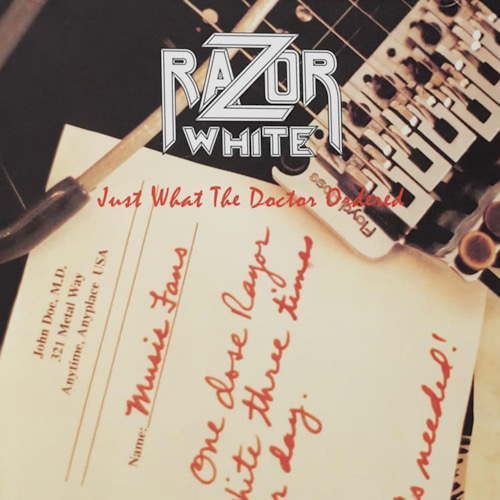 RAZOR
WHITE
Just What The Doctor Ordered
Floyd Rose
John Doe, M.D.
321 Metal Way
Anytime, Anyplace USA
Name: Music Fans
One dose Razor
White three times
day.
needed!